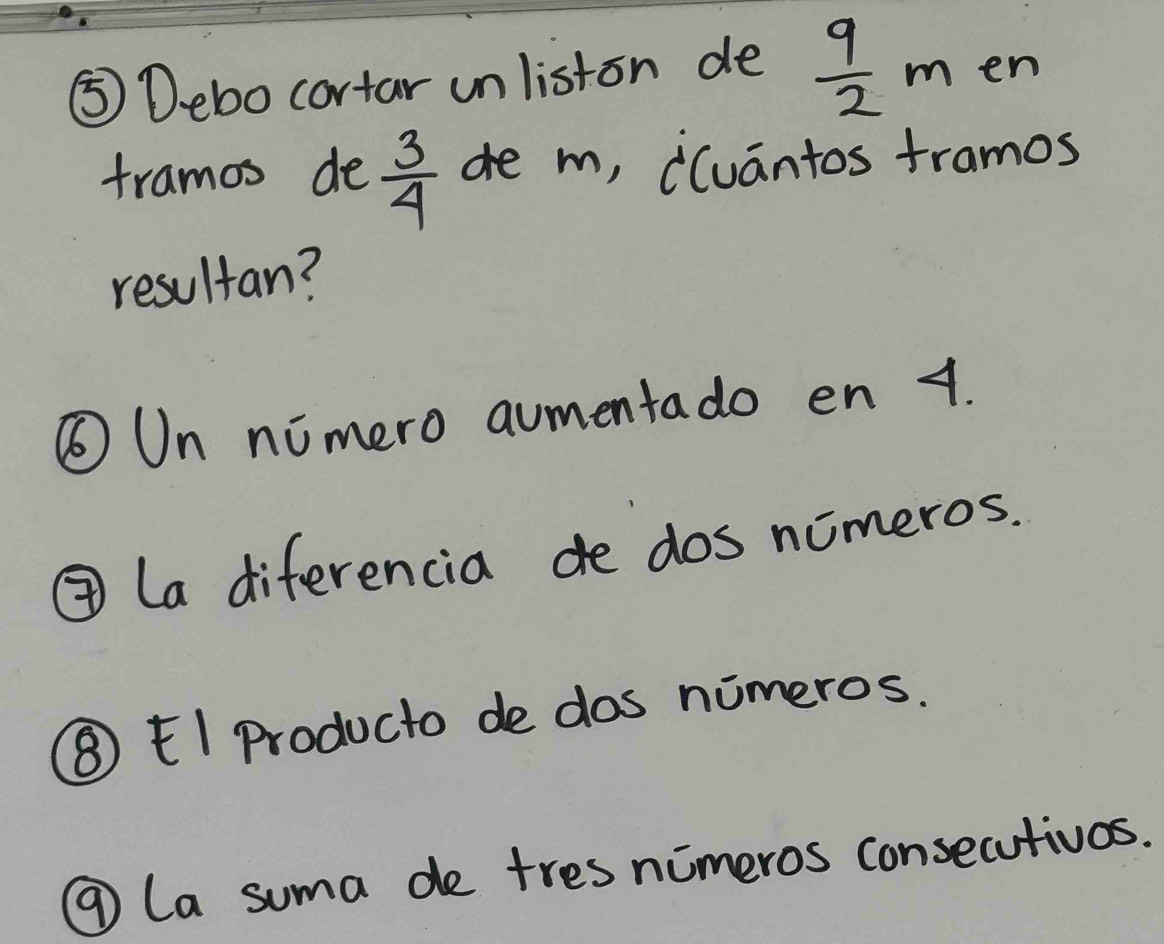 ⑤ Debo cortar un liston de 9/2 m en
tramos de 3/4 de m, ¿Cuántos tramos
resultan?
⑥ Un número aumentado en 4.
⑦ La diferencia de dos números.
⑧ El Producto de dos números.
⑨ La suma de tres números consecutivos.